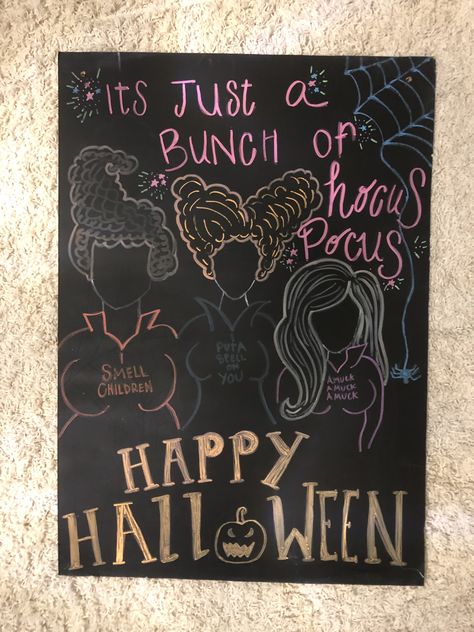 ITS JUST a
BUNCH OF
hocus
Pocus
I
SMELL
CHILDREN
I
PUT A
SPELL
ON
YOU
AMUCK
AMUCK
AMUCK
HAPPY
HALLOWEEN